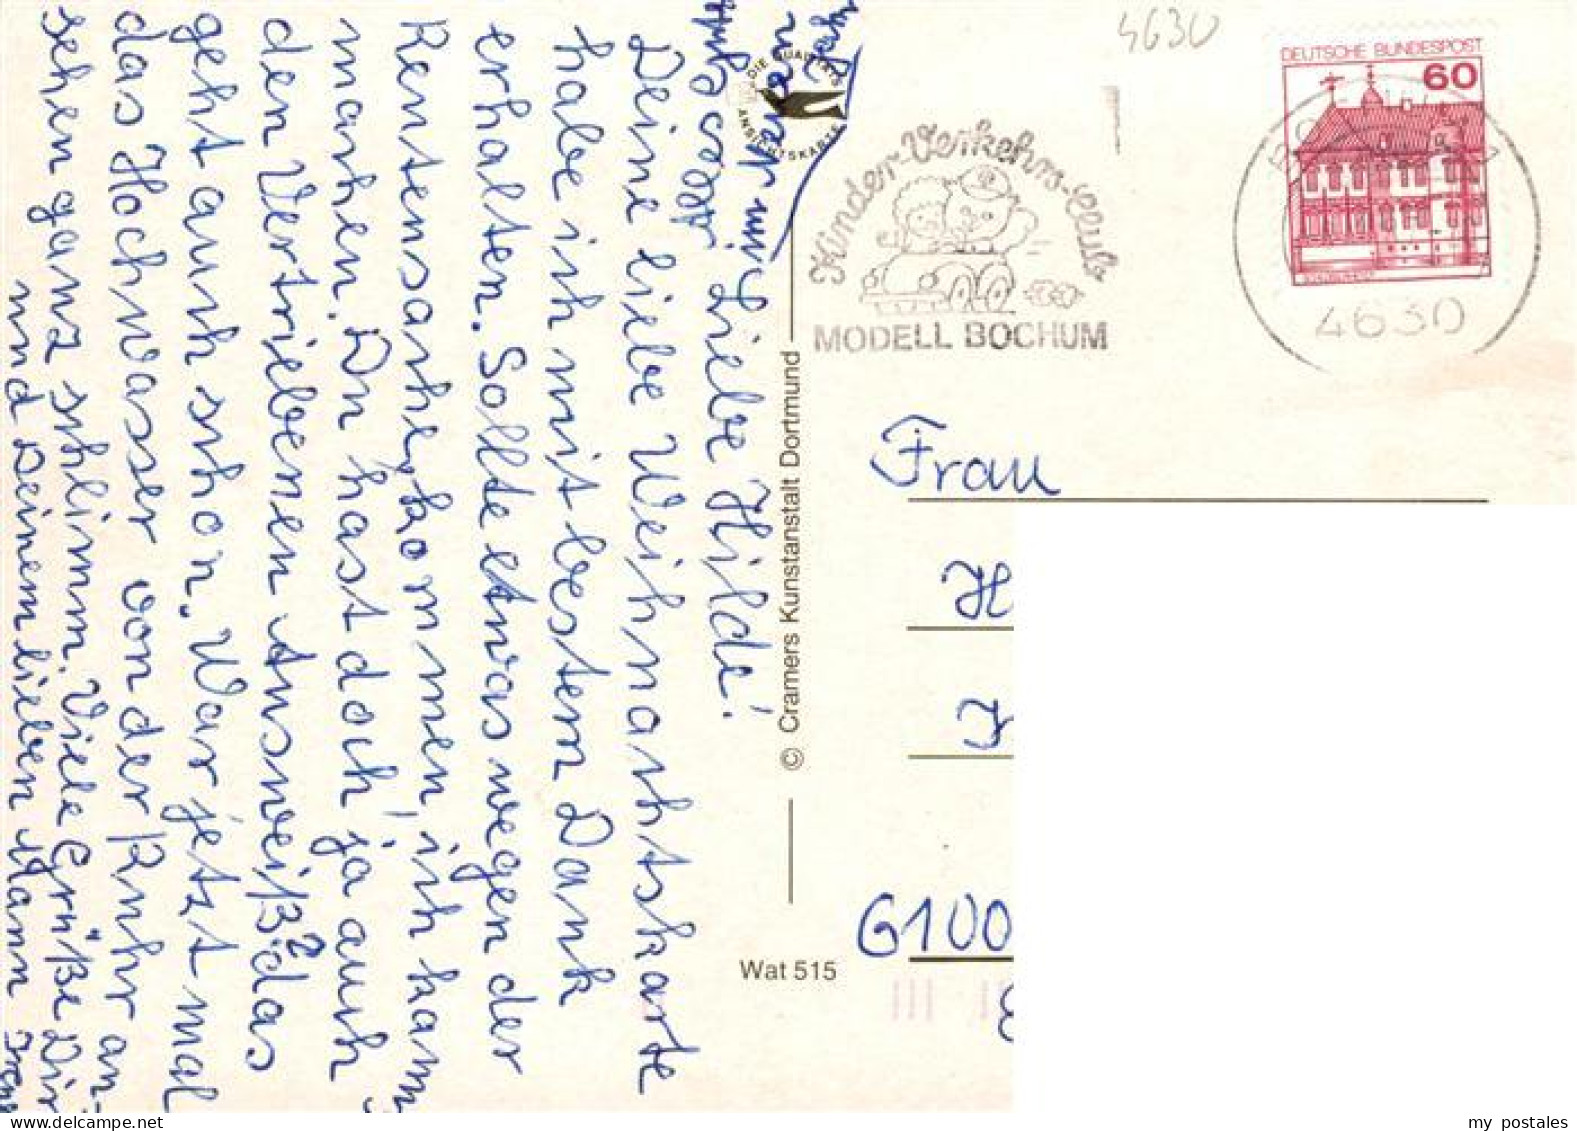 Liebe Hilde!
Deine liebe Weihnachtskarte
habe ich mit bestem Dank
erhalten. Sollte etwas wegen der
Rentensache kommen, ich kann
machen. Du hast doch ja auch
den Vertriebenen Ausweiß? das
geht auch schon. War jetzt mal
das Hochwasser von der Ruhr an-
sehen ganz schlimm. Viele Grüße Dir
und Deinem lieben Mann
DIE QUALITÄTS
ANSICHTSKARTE
© Cramers Kunstanstalt Dortmund
Wat 515
4630
Kinder-Verkehrs-Club
MODELL BOCHUM
DEUTSCHE BUNDESPOST
60
4630
Frau
H
6100
my postales